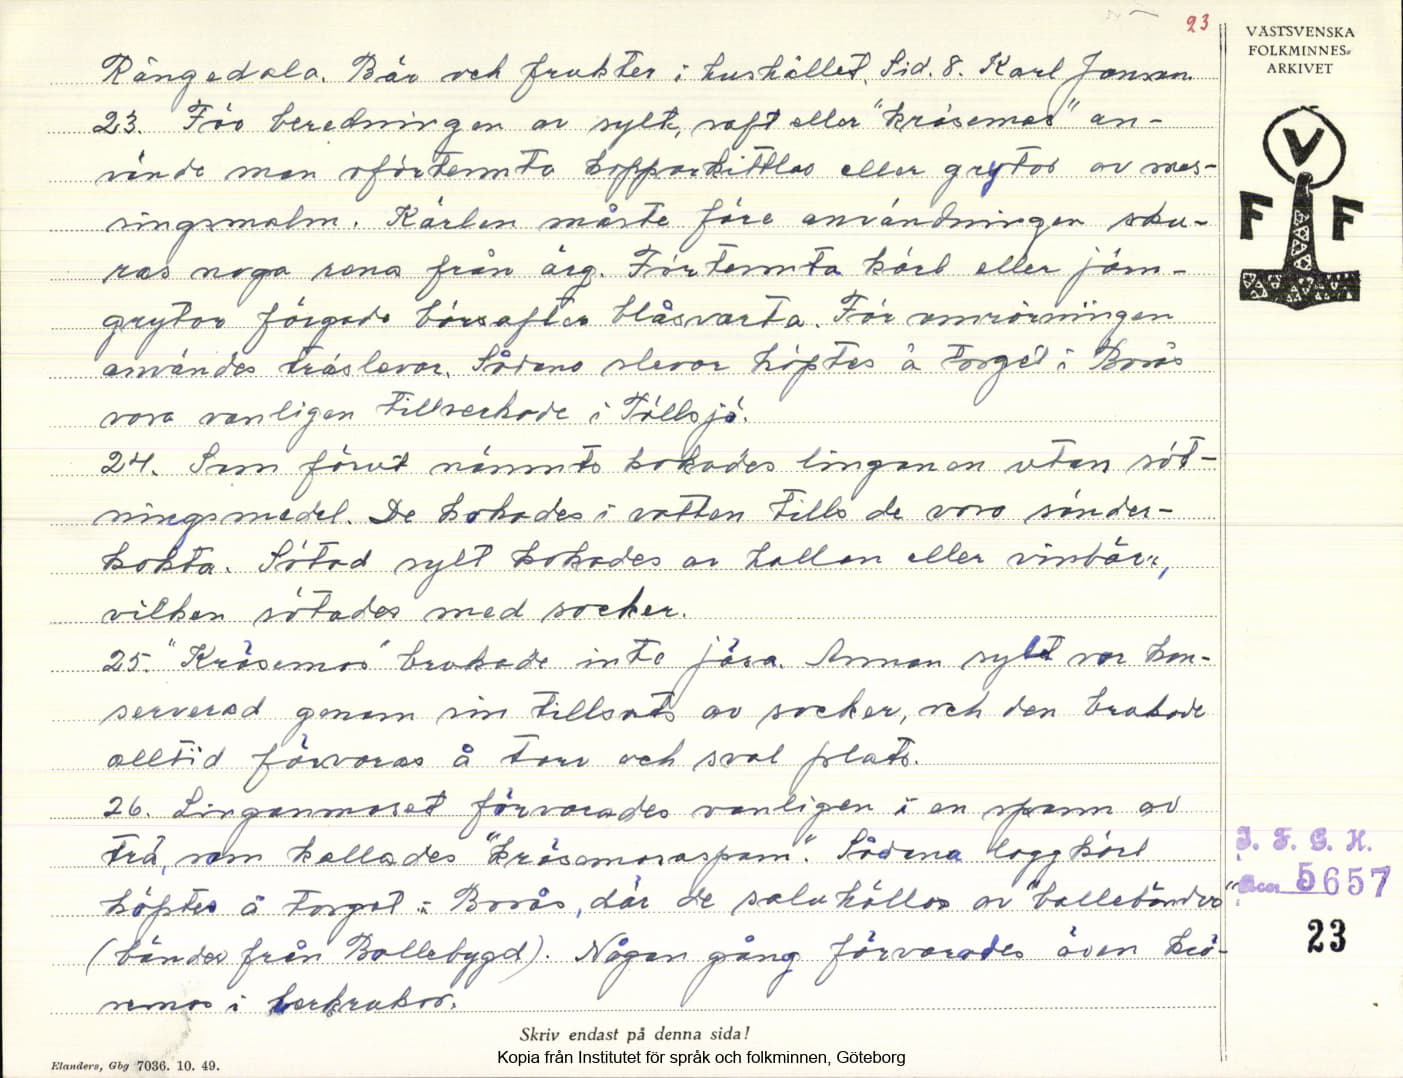 23
VÄSTSVENSKA
FOLKMINNES-
ARKIVET
V
F F
Rångedala. Bär och frukter i hushållet. Sid. 8. Karl Jonsson.
23. För beredningen av sylt, saft eller "kräsemos" an-
vände man oförtennta kopparkittlar eller grytor av mes-
singsmalm. Kärlen måste före användningen sku-
ras noga rena från ärg. Förtennta kärl eller järn-
grytor färgade bärsaften blåsvarta. För omrörningen
användes träslevar. Sådana slevar köptes å torget i Borås
vora vanligen tillverkade i Töllsjö.
24. Som förut nämnts kokades lingonen utan söt-
ningsmedel. De kokades i vatten tills de voro sönder-
kokta. Sötad sylt kokades av hallon eller vinbär,
vilken sötades med socker.
25. "Kräsemos" brukade inte jäsa. Annan sylt var kon-
serverad genom sin tillsats av socker, och den brukade
alltid förvaras å torr och sval plats.
26. Lingonmoset förvarades vanligen i en spann av
trä, som kallades "kräsemosaspann". Sådana laggkärl
köptes å torget i Borås, där de saluhöllos av "bollebönder"
(bönder från Bollebygd). Någon gång förvarades även krä-
semos i lerkrukor.
I. F. G. H.
Acc 5657
23
Skriv endast på denna sida!
Kopia från Institutet för språk och folkminnen, Göteborg
Elanders, Gbg 7036. 10. 49.